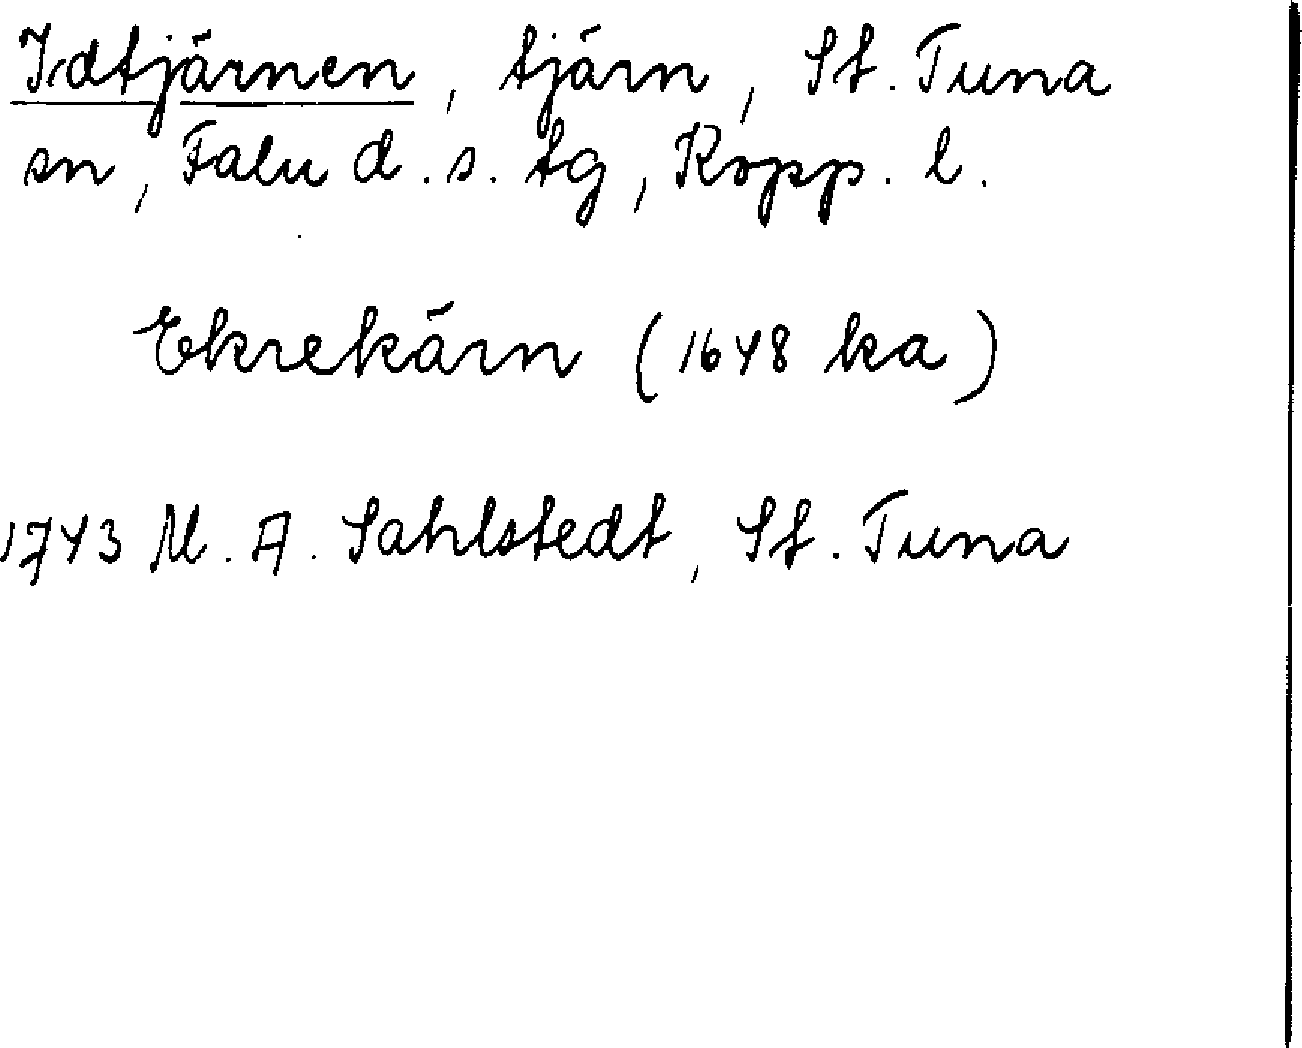 Idtjärnen, tjärn, St. Tuna
sn, Falu d.s. tg, Kopp. l.
Ekrekärn (1648 ka)
1743 M. A. Sahlstedt, St. Tuna